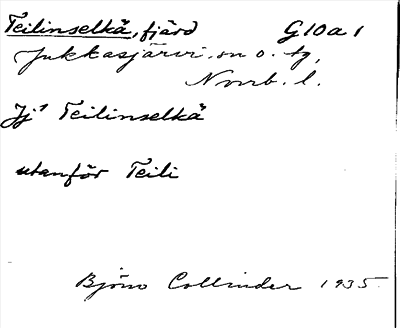 Teilinselkä, fjärd G10a1
Jukkasjärvi sn o. tg,
Norrb. l.
Jj¹ Teilinselkä
utanför Teili
Björn Collinder 1935